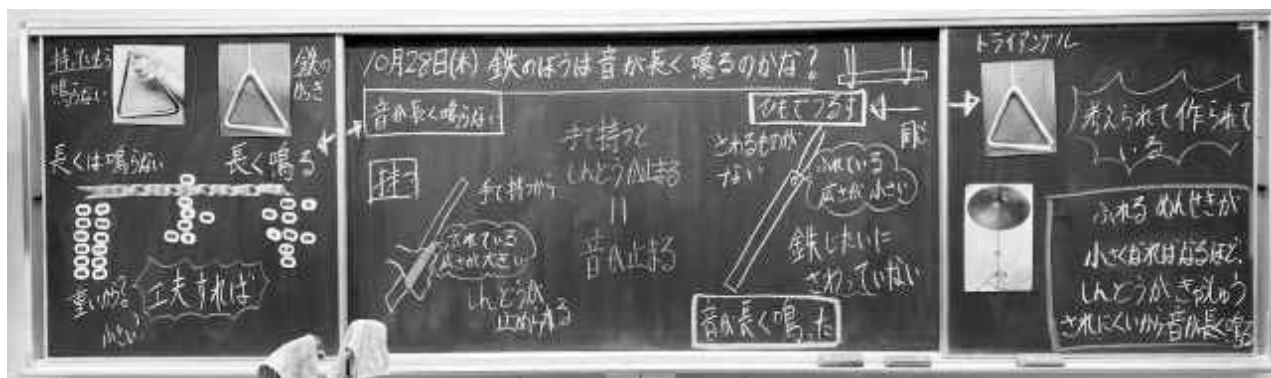 持っていたら
鳴らない
鉄の
ぼう
長くは鳴らない
長く鳴る
重いから
工夫すれば
10月28日(木) 鉄のぼうは音が長く鳴るのかな?
音が長く鳴らない
持つ
手で持つから
ふれている
広さが大きい
しんどうが
止められる
手で持つと
しんどうが止まる
||
音が止まる
ひもでつるす
さわるものが
ない
ふれている
広さが小さい
鉄じたいに
さわっていない
音が長く鳴った
同じ
トライアングル
考えられて作られて
いる
ふれるめんせきが
小さくなればなるほど、
しんどうがきゅうしゅう
されにくいから音が長く鳴る